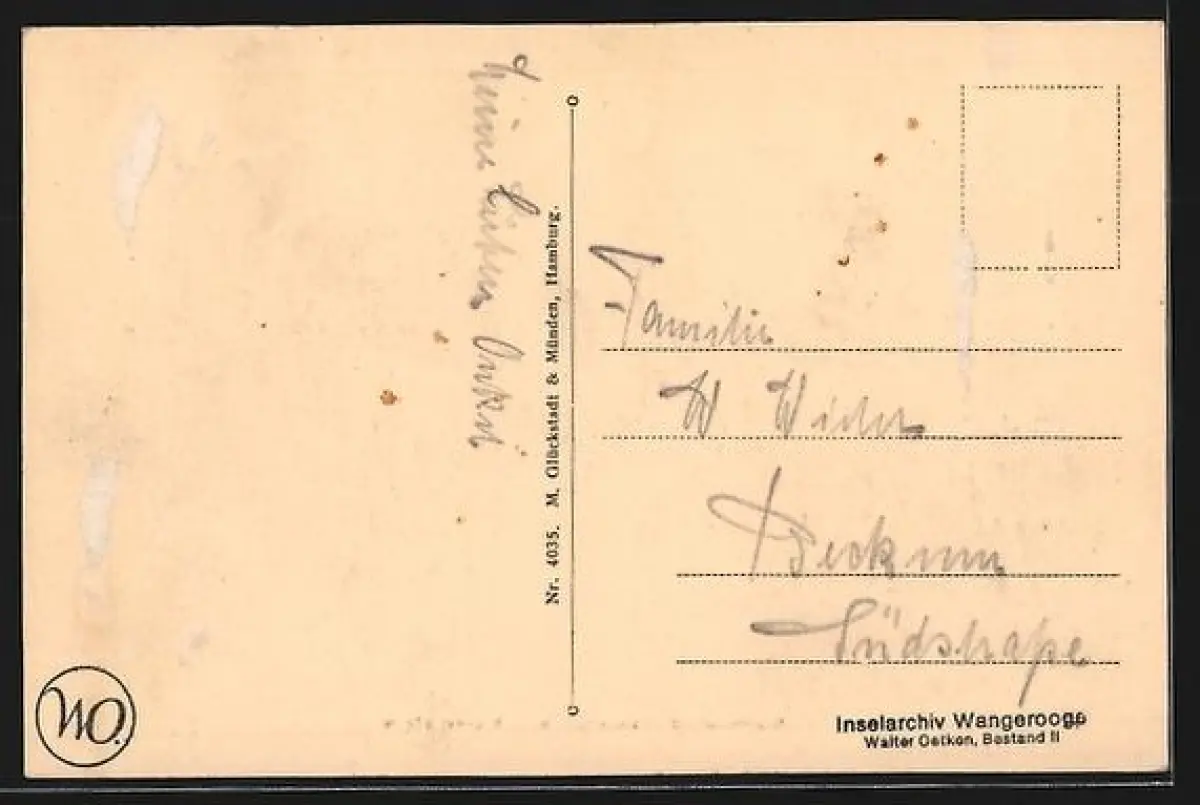 Meine Lieben
Nr. 4035. M. Glückstadt & Münden, Hamburg.
Familie
W
Südstraße
WO.
Inselarchiv Wangerooge
Walter Oetken, Bestand II